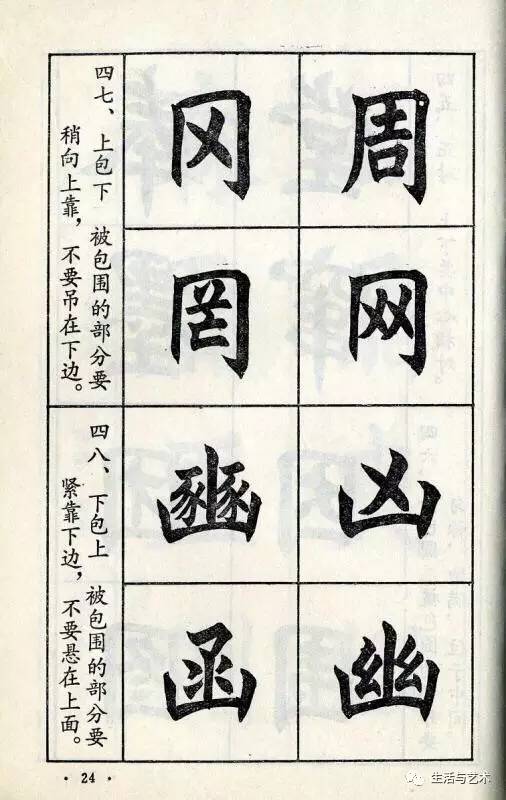 周
网
凶
幽
冈
罔
豳
函
四七、上包下 被包围的部分要
稍向上靠，不要吊在下边。
四八、下包上 被包围的部分要
紧靠下边，不要悬在上面。
· 24 ·
生活与艺术